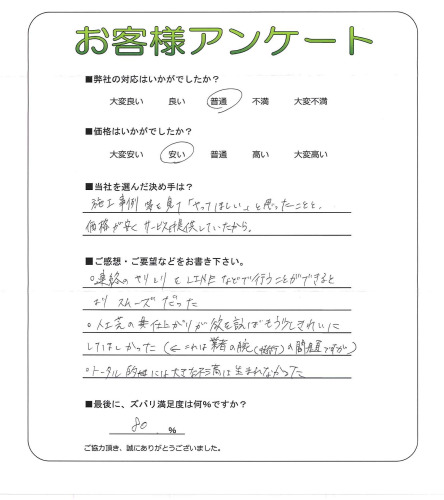 お客様アンケート
■弊社の対応はいかがでしたか?
大変良い 良い 普通 不満 大変不満
■価格はいかがでしたか?
大変安い 安い 普通 高い 大変高い
■当社を選んだ決め手は?
施工事例等を見て「やってほしい」と思ったことと、
価格が安くサービスを提供していたから。
■ご感想・ご要望などをお書き下さい。
○連絡のやりとりをLINEなどで行うことができると
よりスムーズだった
○人工芝の 仕上がりが欲を言えばもう少しきれいに
してほしかった(←これは業者の腕 の問題ですが)
○トータル的には大きな不満は生まれなかった
■最後に、ズバリ満足度は何%ですか?
80 %
ご協力頂き、誠にありがとうございました。